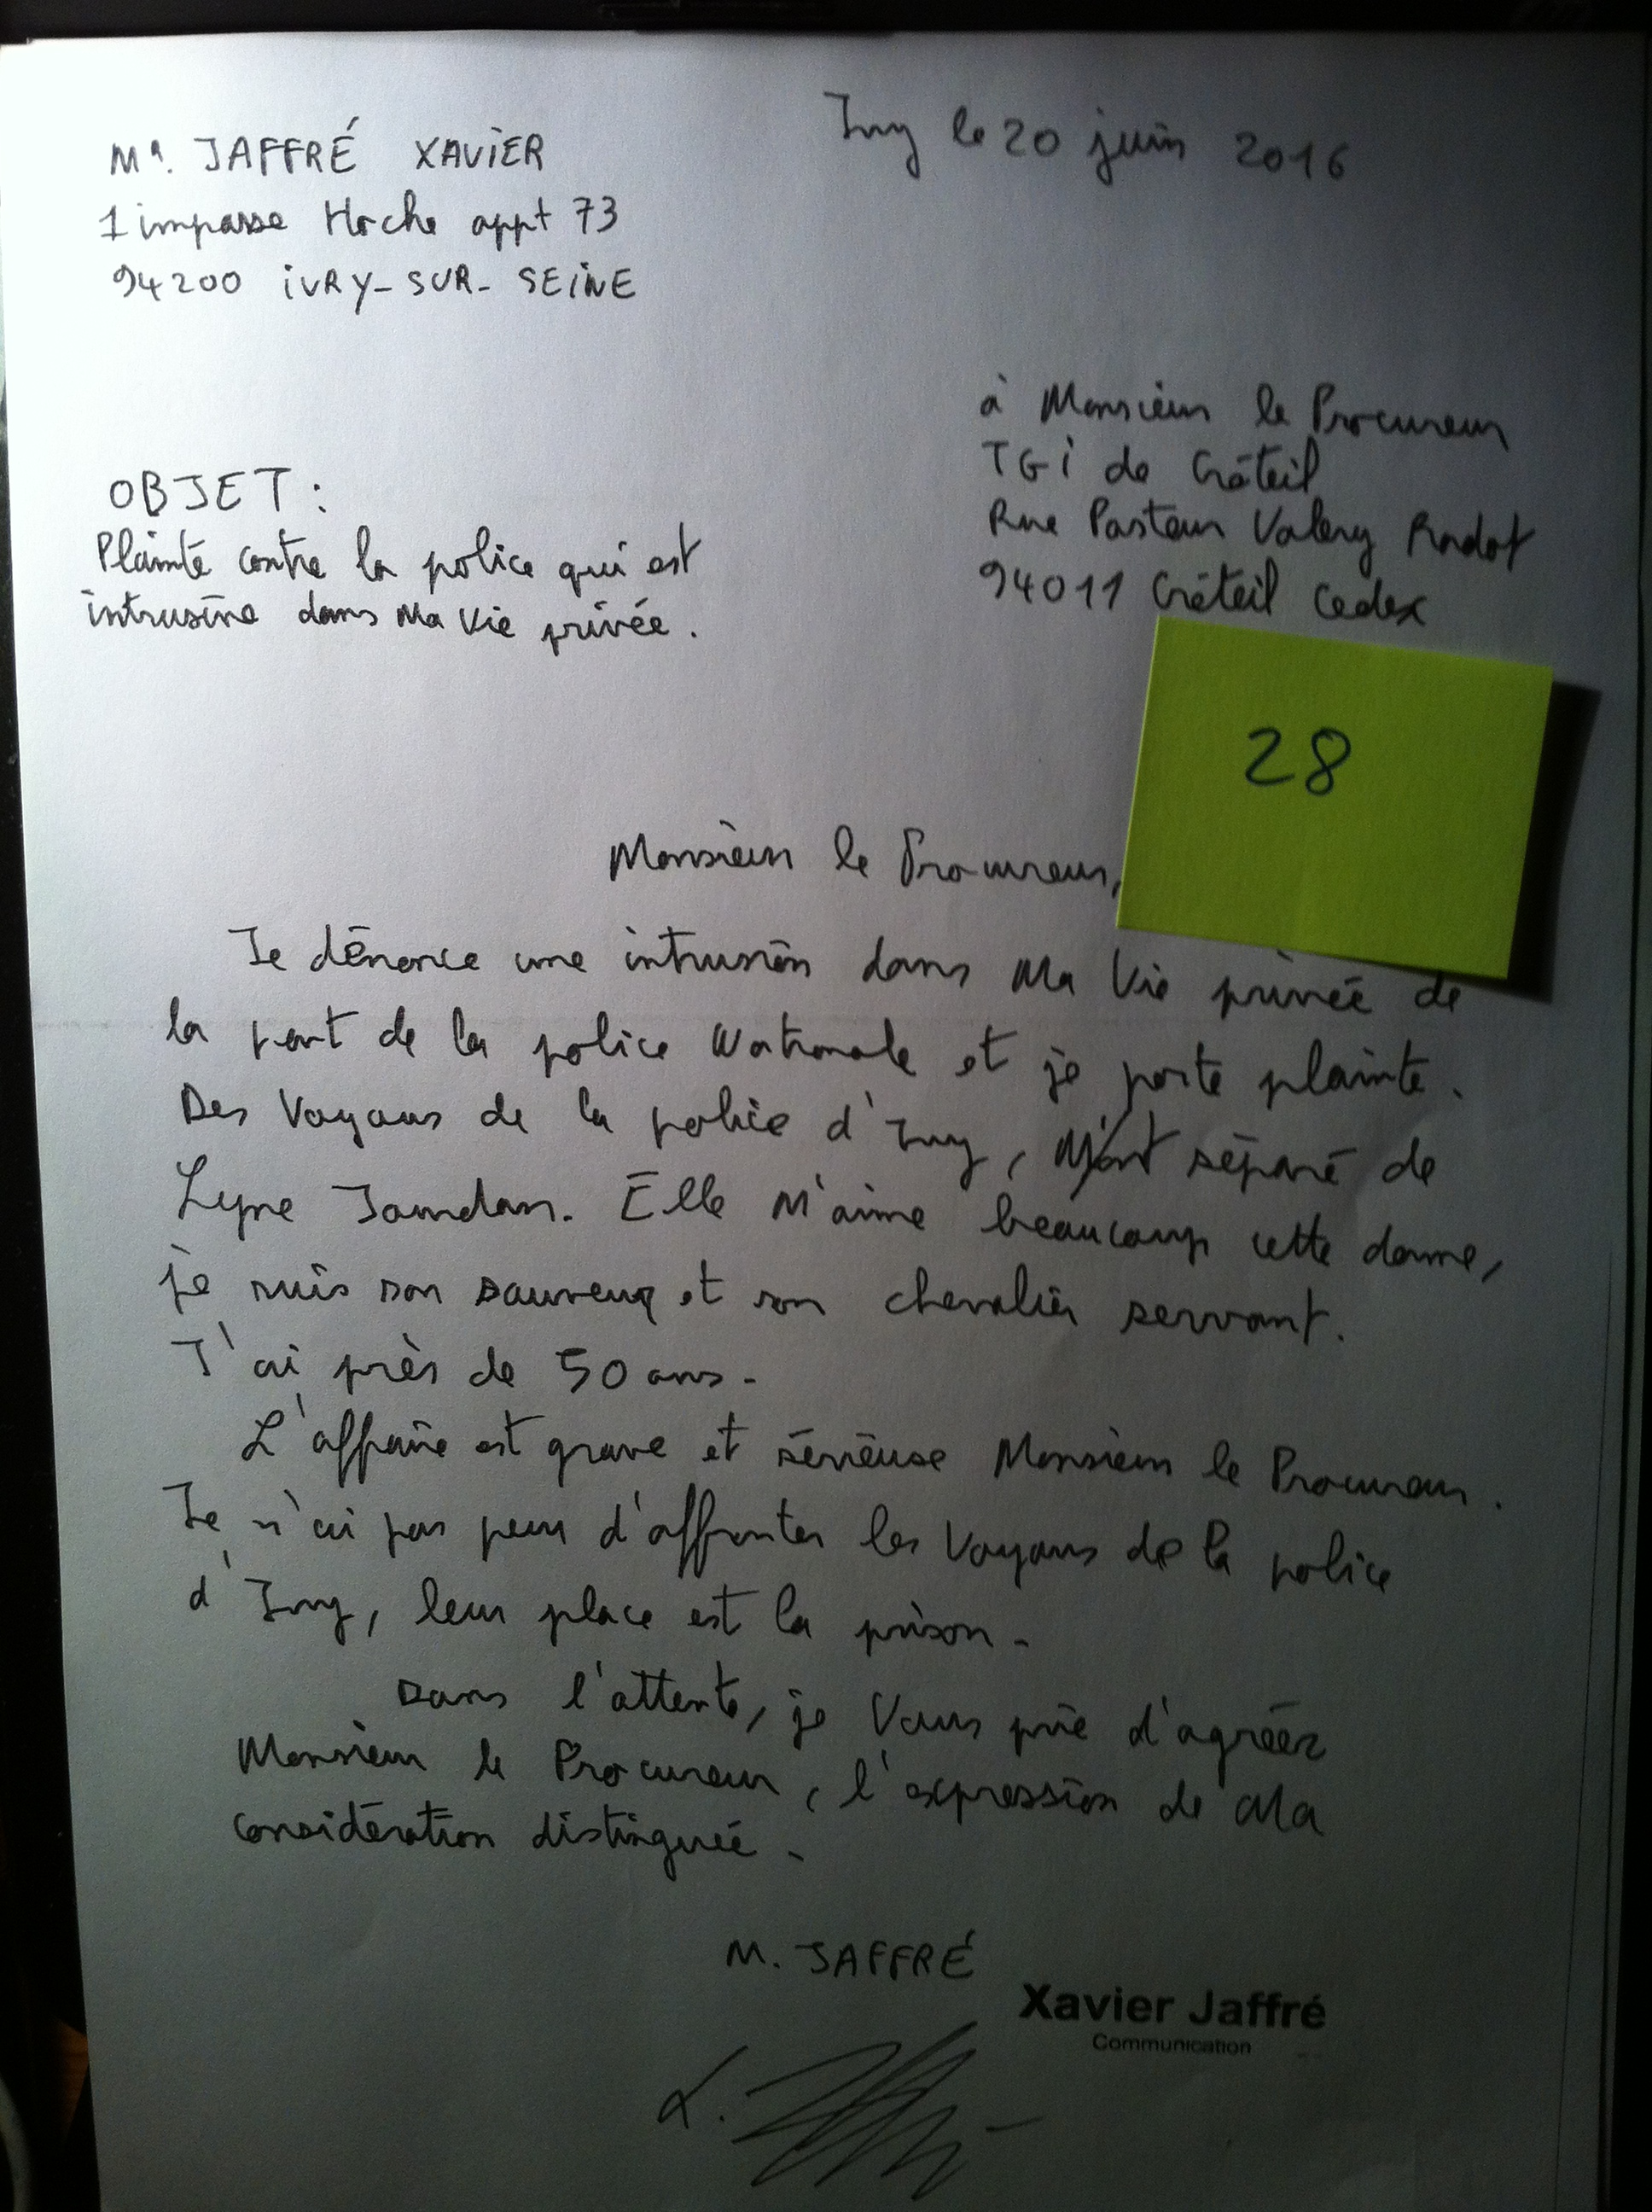 Mr. JAFFRÉ XAVIER
1 impasse Hoche appt 73
94200 IVRY-SUR-SEINE
Ivry le 20 juin 2016
à Monsieur le Procureur
TGI de Créteil
Rue Pasteur Valery Radot
94011 Créteil Cedex
OBJET :
Plainte contre la police qui est
intrusive dans Ma Vie privée.
28
Monsieur le Procureur,
Je dénonce une intrusion dans Ma Vie privée de
la part de la police Nationale et je porte plainte.
Des Voyous de la police d'Ivry, M'ont séparé de
Lyne Jourdan. Elle M'aime beaucoup cette dame,
je suis son sauveur et son chevalier servant.
J'ai près de 50 ans.
L'affaire est grave et sérieuse Monsieur le Procureur.
Je n'ai pas peur d'affronter les Voyous de la police
d'Ivry, leur place est la prison.
Dans l'attente, je Vous prie d'agréer
Monsieur le Procureur, l'expression de Ma
considération distinguée.
M. JAFFRÉ
Xavier Jaffré
Communication